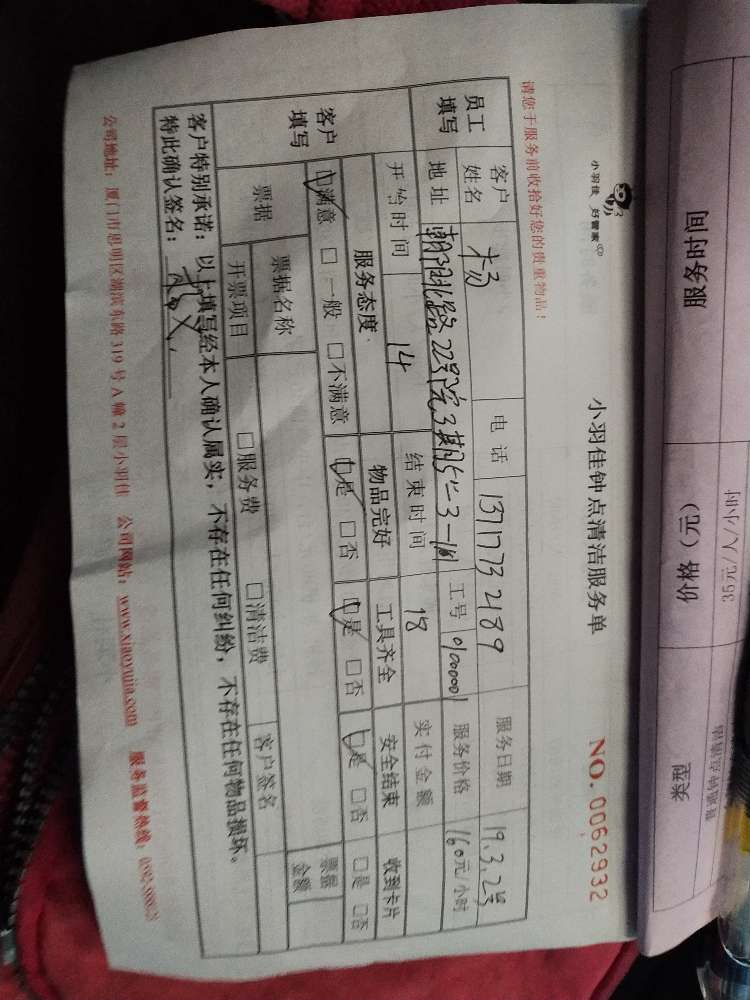 服务时间 价格（元） 类型
35元/人/小时 普通钟点清洁
小羽佳 好管家
小羽佳钟点清洁服务单 NO. 0062932
请您于服务前收拾好您的贵重物品！
员工填写
客户姓名 杨 电话 13717732189 服务日期 19.3.2号
地址 22号院3期 工号 0100001 服务价格 160元/小时
开始时间 14 结束时间 18 实付金额
客户填写
服务态度 物品完好 工具齐全 安全结束 收到卡片
□满意 □一般 □不满意 □是 □否 □是 □否 □是 □否 □是 □否
票据 票据名称 票据金额
开票项目 □服务费 □清洁费 客户签名
客户特别承诺：以上填写经本人确认属实，不存在任何纠纷，不存在任何物品损坏。
特此确认签名：
公司地址：厦门市思明区湖滨东路319号A幢2层小羽佳 公司网站：www.xiaoyujia.com 服务监督热线：